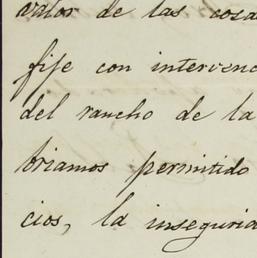 valor de las cosa
fije con intervenc
del rancho de la
briamos permitido
cios, la inseguria